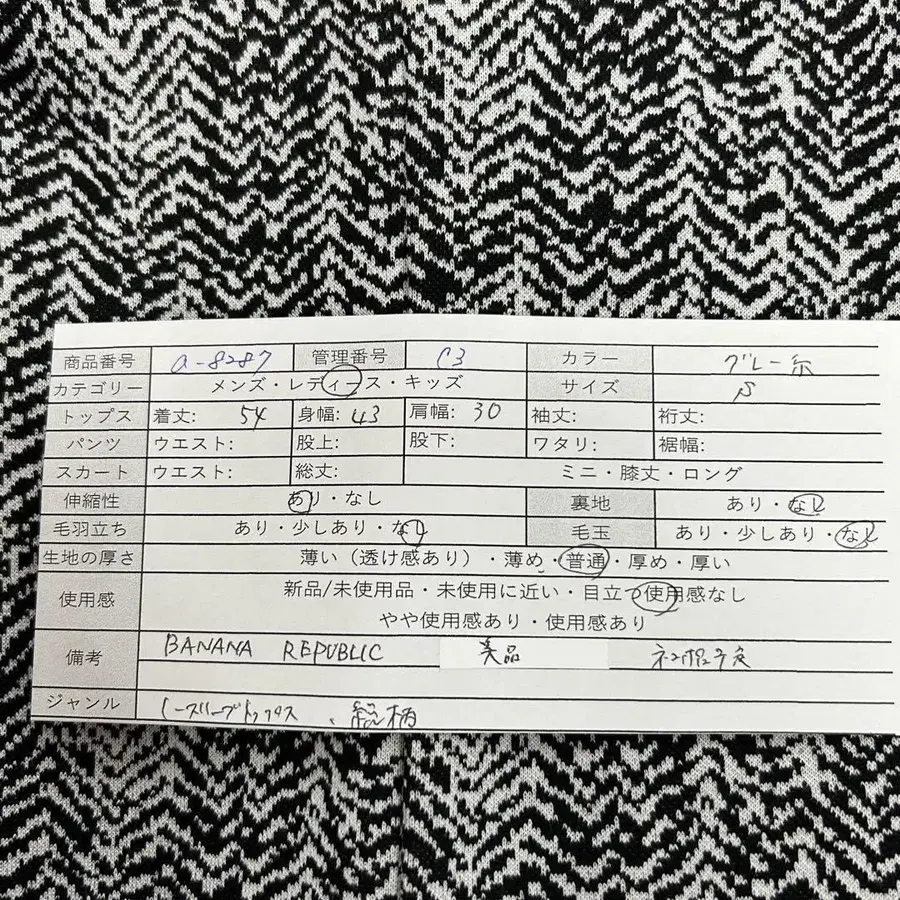 商品番号 a-8287 管理番号 C3 カラー グレー系
カテゴリー メンズ・レディース・キッズ サイズ S
トップス 着丈: 54 身幅: 43 肩幅: 30 袖丈: 裄丈:
パンツ ウエスト: 股上: 股下: ワタリ: 裾幅:
スカート ウエスト: 総丈: ミニ・膝丈・ロング
伸縮性 あり・なし 裏地 あり・なし
毛羽立ち あり・少しあり・なし 毛玉 あり・少しあり・なし
生地の厚さ 薄い(透け感あり)・薄め・普通・厚め・厚い
使用感 新品/未使用品・未使用に近い・目立つ使用感なし
やや使用感あり・使用感あり
備考 BANANA REPUBLIC 美品
ジャンル ノースリーブトップス、総柄